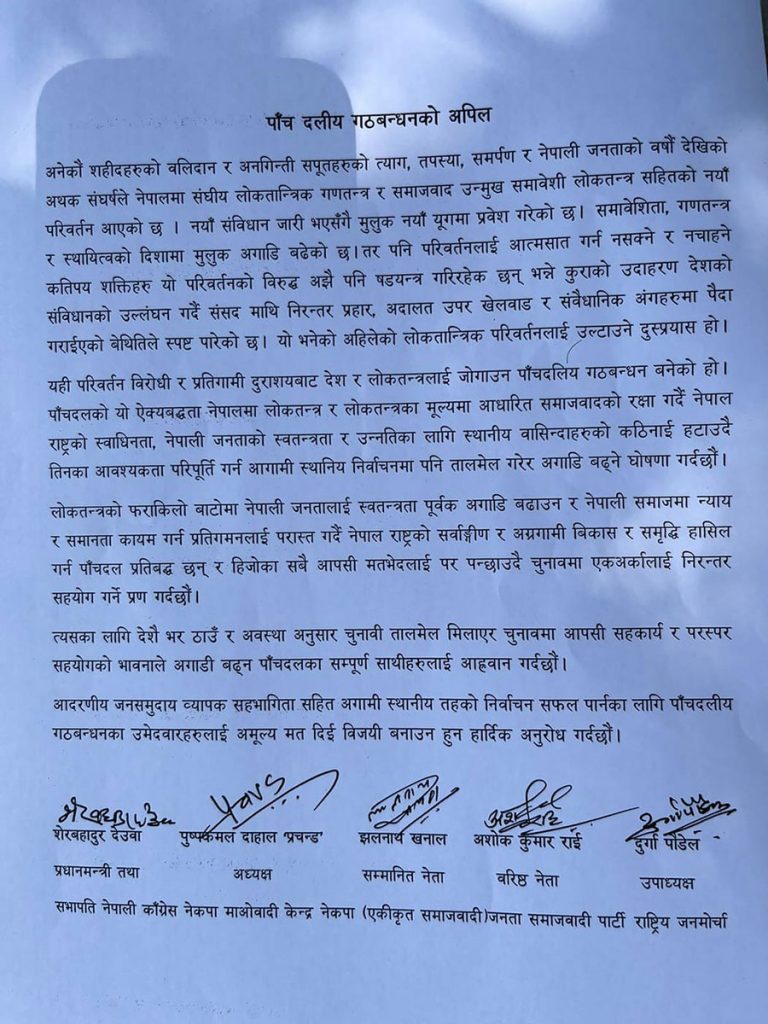 पाँच दलीय गठबन्धनको अपिल
अनेकौ शहीदहरुको बलिदान र अनगिन्ती सपूतहरुको त्याग, तपस्या, समर्पण र नेपाली जनताको वर्षौं देखिको
अथक संघर्षले नेपालमा संघीय लोकतान्त्रिक गणतन्त्र र समाजवाद उन्मुख समावेशी लोकतन्त्र सहितको नयाँ
परिवर्तन आएको छ । नयाँ संविधान जारी भएसँगै मुलुक नयाँ यूगमा प्रवेश गरेको छ। समावेशिता, गणतन्त्र
र स्थायित्वको दिशामा मुलुक अगाडि बढेको छ।तर पनि परिवर्तनलाई आत्मसात गर्न नसक्ने र नचाहने
कतिपय शक्तिहरु यो परिवर्तनको विरुद्ध अझै पनि षडयन्त्र गरिरहेक छन् भन्ने कुराको उदाहरण देशको
संविधानको उल्लंघन गर्दै संसद माथि निरन्तर प्रहार, अदालत उपर खेलवाड र संवैधानिक अंगहरुमा पैदा
गराईएको बेथितिले स्पष्ट पारेको छ। यो भनेको अहिलेको लोकतान्त्रिक परिवर्तनलाई उल्टाउने दुस्प्रयास हो।
यही परिवर्तन विरोधी र प्रतिगामी दुराशयबाट देश र लोकतन्त्रलाई जोगाउन पाँचदलिय गठबन्धन बनेको हो।
पाँचदलको यो ऐक्यबद्धता नेपालमा लोकतन्त्र र लोकतन्त्रका मूल्यमा आधारित समाजवादको रक्षा गर्दै नेपाल
राष्ट्रको स्वाधिनता, नेपाली जनताको स्वतन्त्रता र उन्नतिका लागि स्थानीय वासिन्दाहरुको कठिनाई हटाउदै
तिनका आवश्यकता परिपूर्ति गर्न आगामी स्थानिय निर्वाचनमा पनि तालमेल गरेर अगाडि बढ्ने घोषणा गर्दछौं।
लोकतन्त्रको फराकिलो बाटोमा नेपाली जनतालाई स्वतन्त्रता पूर्वक अगाडि बढाउन र नेपाली समाजमा न्याय
र समानता कायम गर्न प्रतिगमनलाई परास्त गर्दै नेपाल राष्ट्रको सर्वाङ्गीण र अग्रगामी बिकास र समृद्धि हासिल
गर्न पाँचदल प्रतिबद्ध छन् र हिजोका सबै आपसी मतभेदलाई पर पन्छाउदै चुनावमा एकअर्कालाई निरन्तर
सहयोग गर्ने प्रण गर्दछौं।
त्यसका लागि देशै भर ठाउँ र अवस्था अनुसार चुनावी तालमेल मिलाएर चुनावमा आपसी सहकार्य र परस्पर
सहयोगको भावनाले अगाडी बढ्न पाँचदलका सम्पूर्ण साथीहरुलाई आह्रवान गर्दछौं।
आदरणीय जनसमुदाय व्यापक सहभागिता सहित अगामी स्थानीय तहको निर्वाचन सफल पार्नका लागि पाँचदलीय
गठबन्धनका उमेदवारहरुलाई अमूल्य मत दिई विजयी बनाउन हुन हार्दिक अनुरोध गर्दछौं।
शेरबहादुर देउवा पुष्पकमल दाहाल 'प्रचन्ड' झलनाथ खनाल अशोक कुमार राई दुर्गा पौडेल
प्रधानमन्त्री तथा अध्यक्ष सम्मानित नेता वरिष्ठ नेता उपाध्यक्ष
सभापति नेपाली काँग्रेस नेकपा माओवादी केन्द्र नेकपा (एकीकृत समाजवादी)जनता समाजवादी पार्टी राष्ट्रिय जनमोर्चा